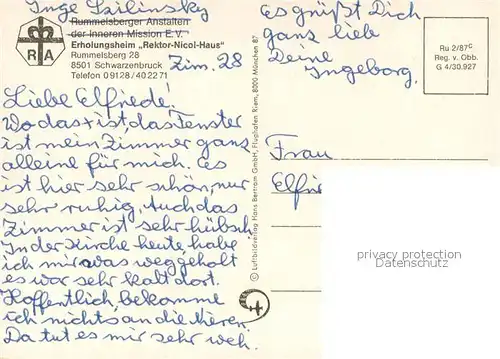 Inge Szilinsky
Rummelsberger Anstalten
der Inneren Mission E.V.
Erholungsheim „Rektor-Nicol-Haus"
Rummelsberg 28
8501 Schwarzenbruck
Telefon 0 91 28 / 40 22 71
R A
Zim. 28
Liebe Elfriede!
Wo das x ist, das Fenster
ist mein Zimmer ganz
alleine für mich. Es
ist hier sehr schön, nur
sehr ruhig, Auch das
Zimmer ist sehr hübsch
In der Kirche heute, habe
ich mir was weggeholt
es war sehr kalt dort.
Hoffentlich bekomme
ich nichts an die Nieren.
Da tut es mir sehr weh.
© Luftbildverlag Hans Bertram GmbH, Flughafen Riem, 8000 München 87
Es grüßt Dich
ganz liebe
Deine
Ingeborg.
Ru 2/87c
Reg. v. Obb.
G 4/30.927
Frau
Elfr
privacy protection
Datenschutz